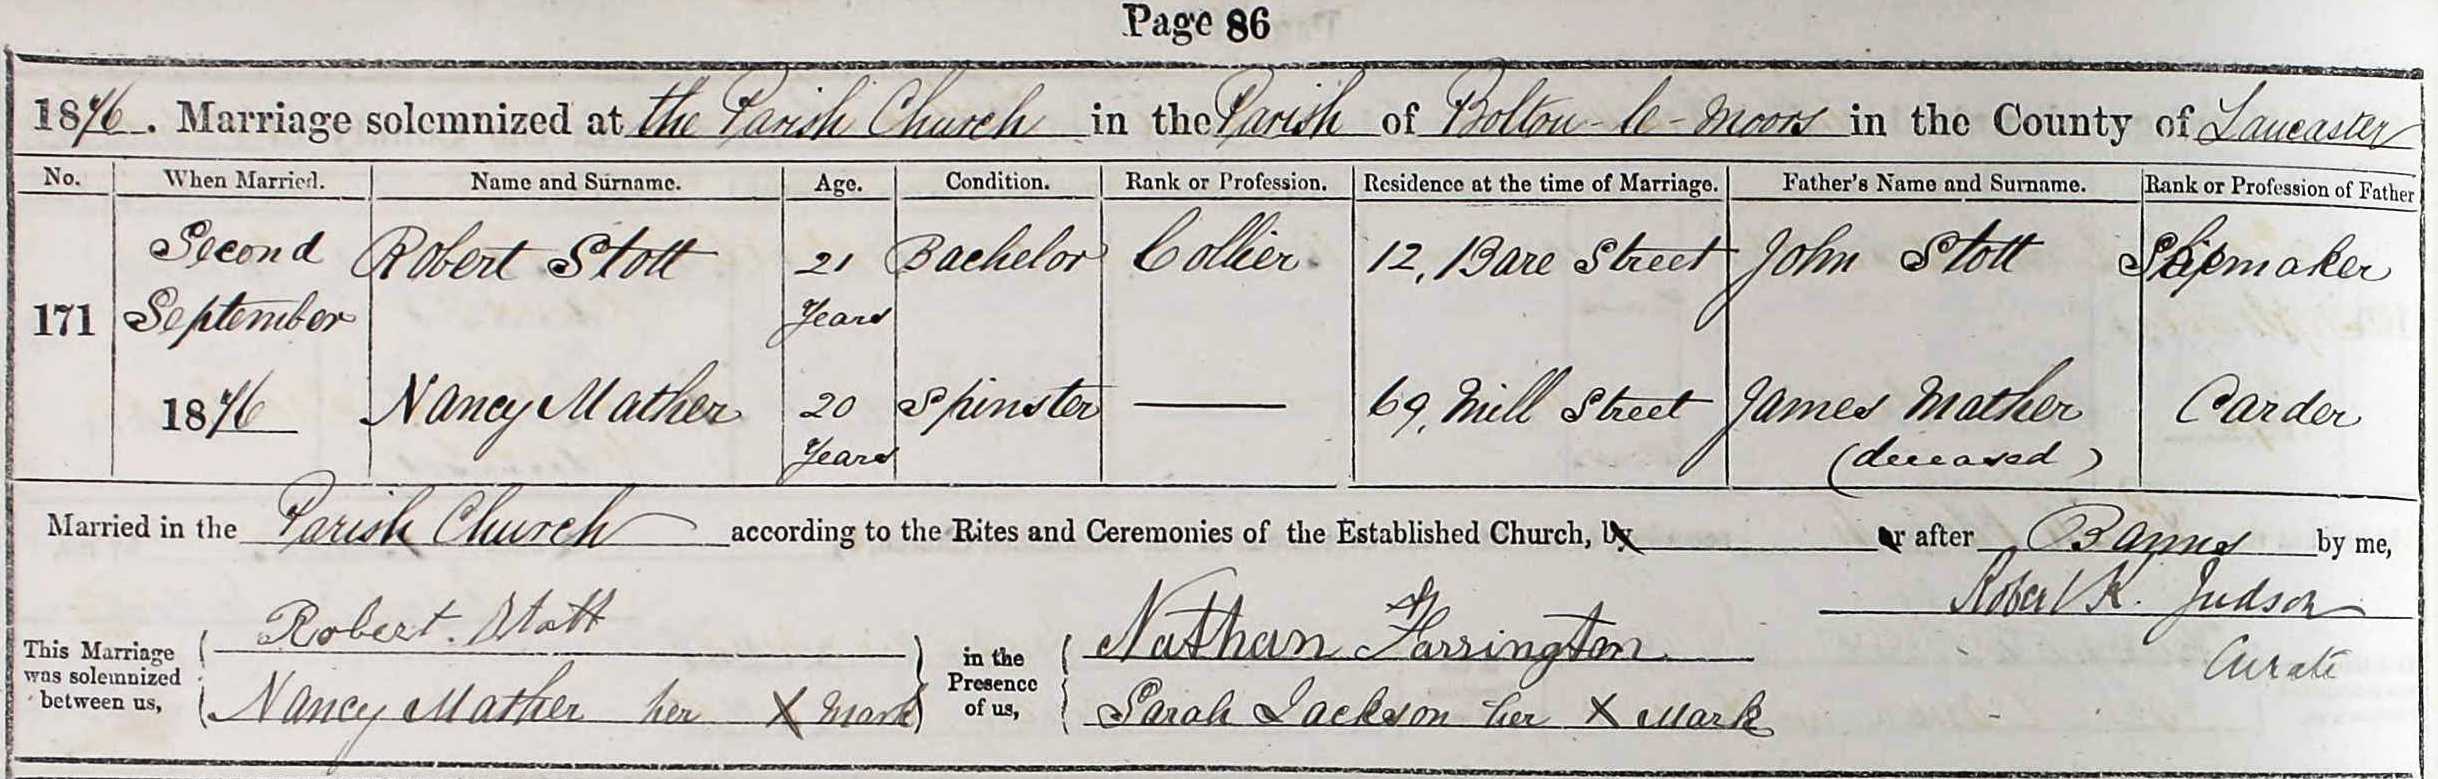 Page 86
1876. Marriage solemnized at the Parish Church in the Parish of Bolton-le-Moors in the County of Lancaster
No. When Married. Name and Surname. Age. Condition. Rank or Profession. Residence at the time of Marriage. Father's Name and Surname. Rank or Profession of Father
Second Robert Stott 21 Bachelor Collier 12, Bare Street John Stott
171 September Years
1876 Nancy Mather 20 Spinster — 69, Mill Street James Mather Carder
Years (deceased)
Married in the Parish Church according to the Rites and Ceremonies of the Established Church, by or after Banns by me,
Robert K. Judson
Curate
This Marriage was solemnized between us, Robert. Stott in the Presence of us, Nathan Farrington
Nancy Mather her X mark Sarah Jackson her X Mark